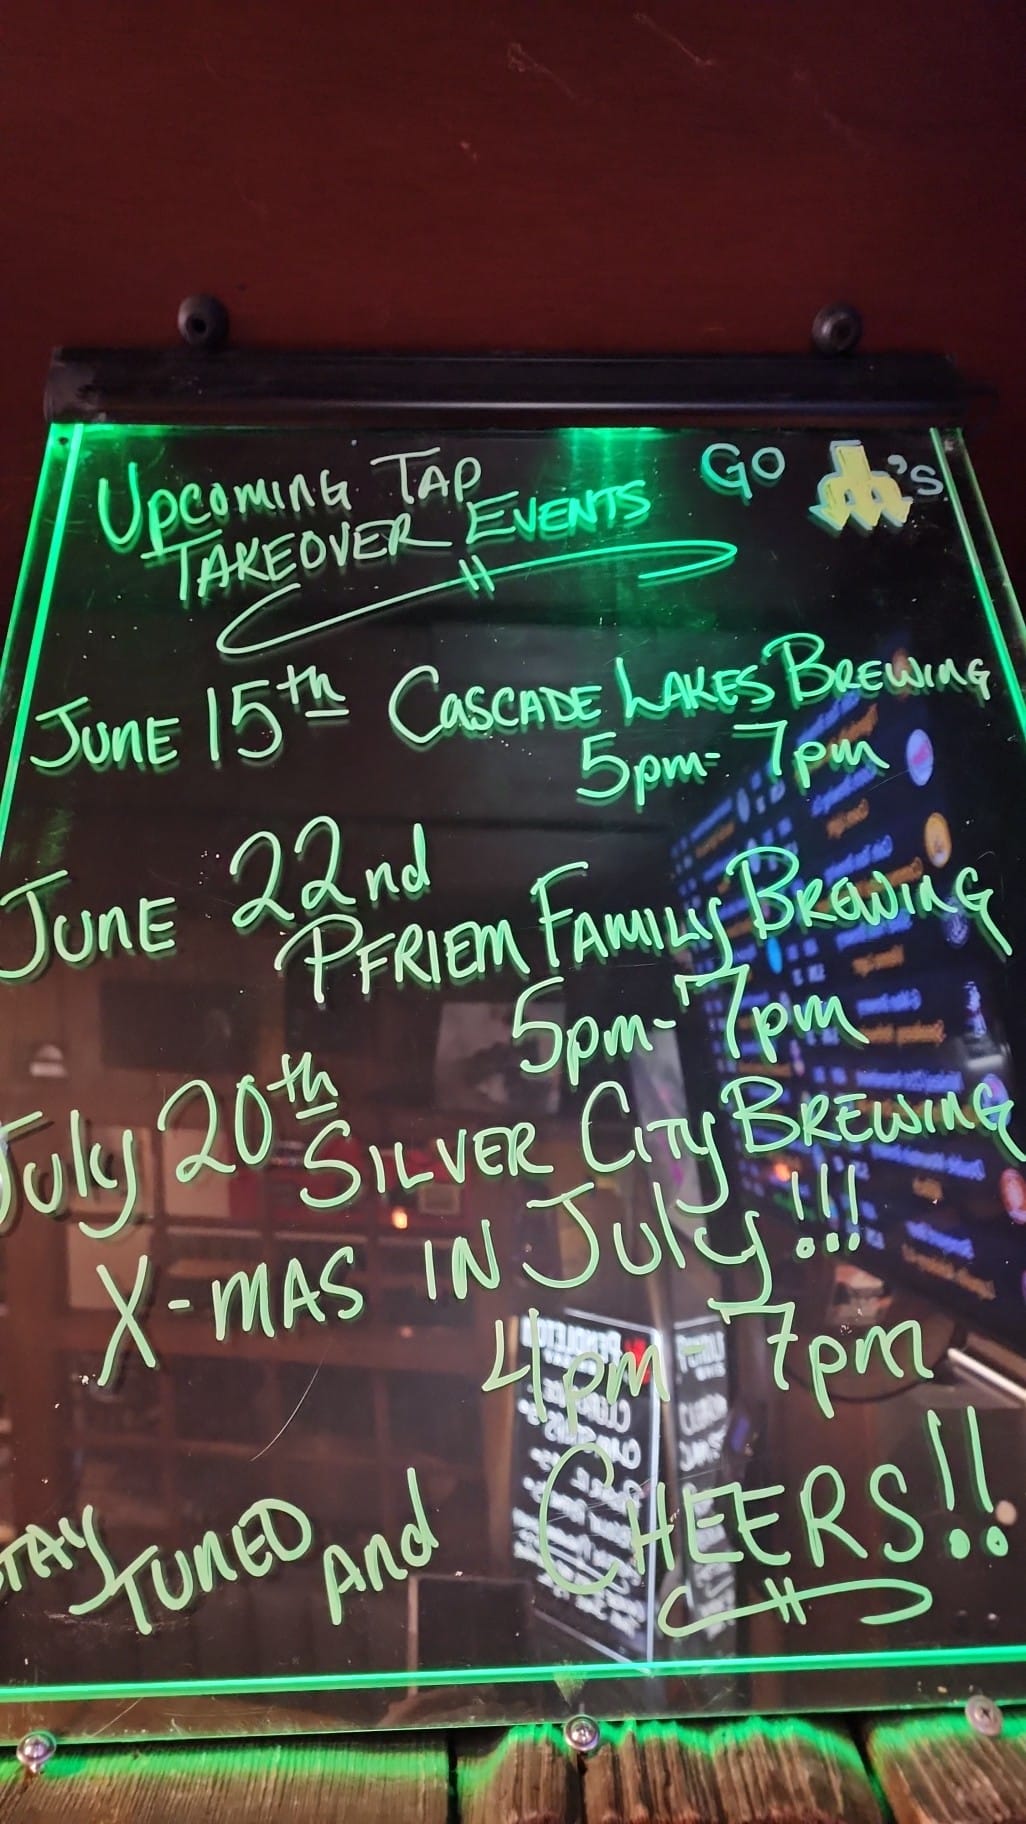 Upcoming Tap
Takeover Events
Go M's
June 15th Cascade Lakes Brewing
5pm-7pm
June 22nd
Pfriem Family Brewing
5pm-7pm
July 20th Silver City Brewing
X-mas in July!!!
4pm-7pm
Stay Tuned and Cheers!!